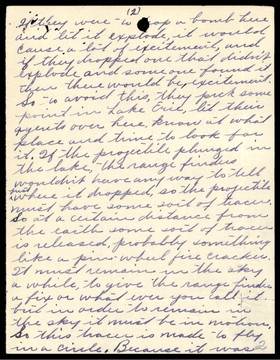 (2)
If they were to drop a bomb here
and let it explode, it would
cause a lot of excitement, and
if they dropped one that didn't
explode and someone found it
then there would be excitement.
So to avoid this, they pick some
point in Lake Erie, let their
agents over here, know at what
place and time to look for
it. If the projectile plunged in
the lake, the range finders
wouldn't have any way to tell
just where it dropped, so the projectile
must have some sort of tracer.
So at a certain distance from
the earth some sort of tracer
is released, probably something
like a pin-wheel fire cracker.
It must remain in the sky
a while, to give the range finders
a fix or what ever you call it
but in order to remain in
the sky it must be in motion
So this tracer is made to play
in a circle. Because it was